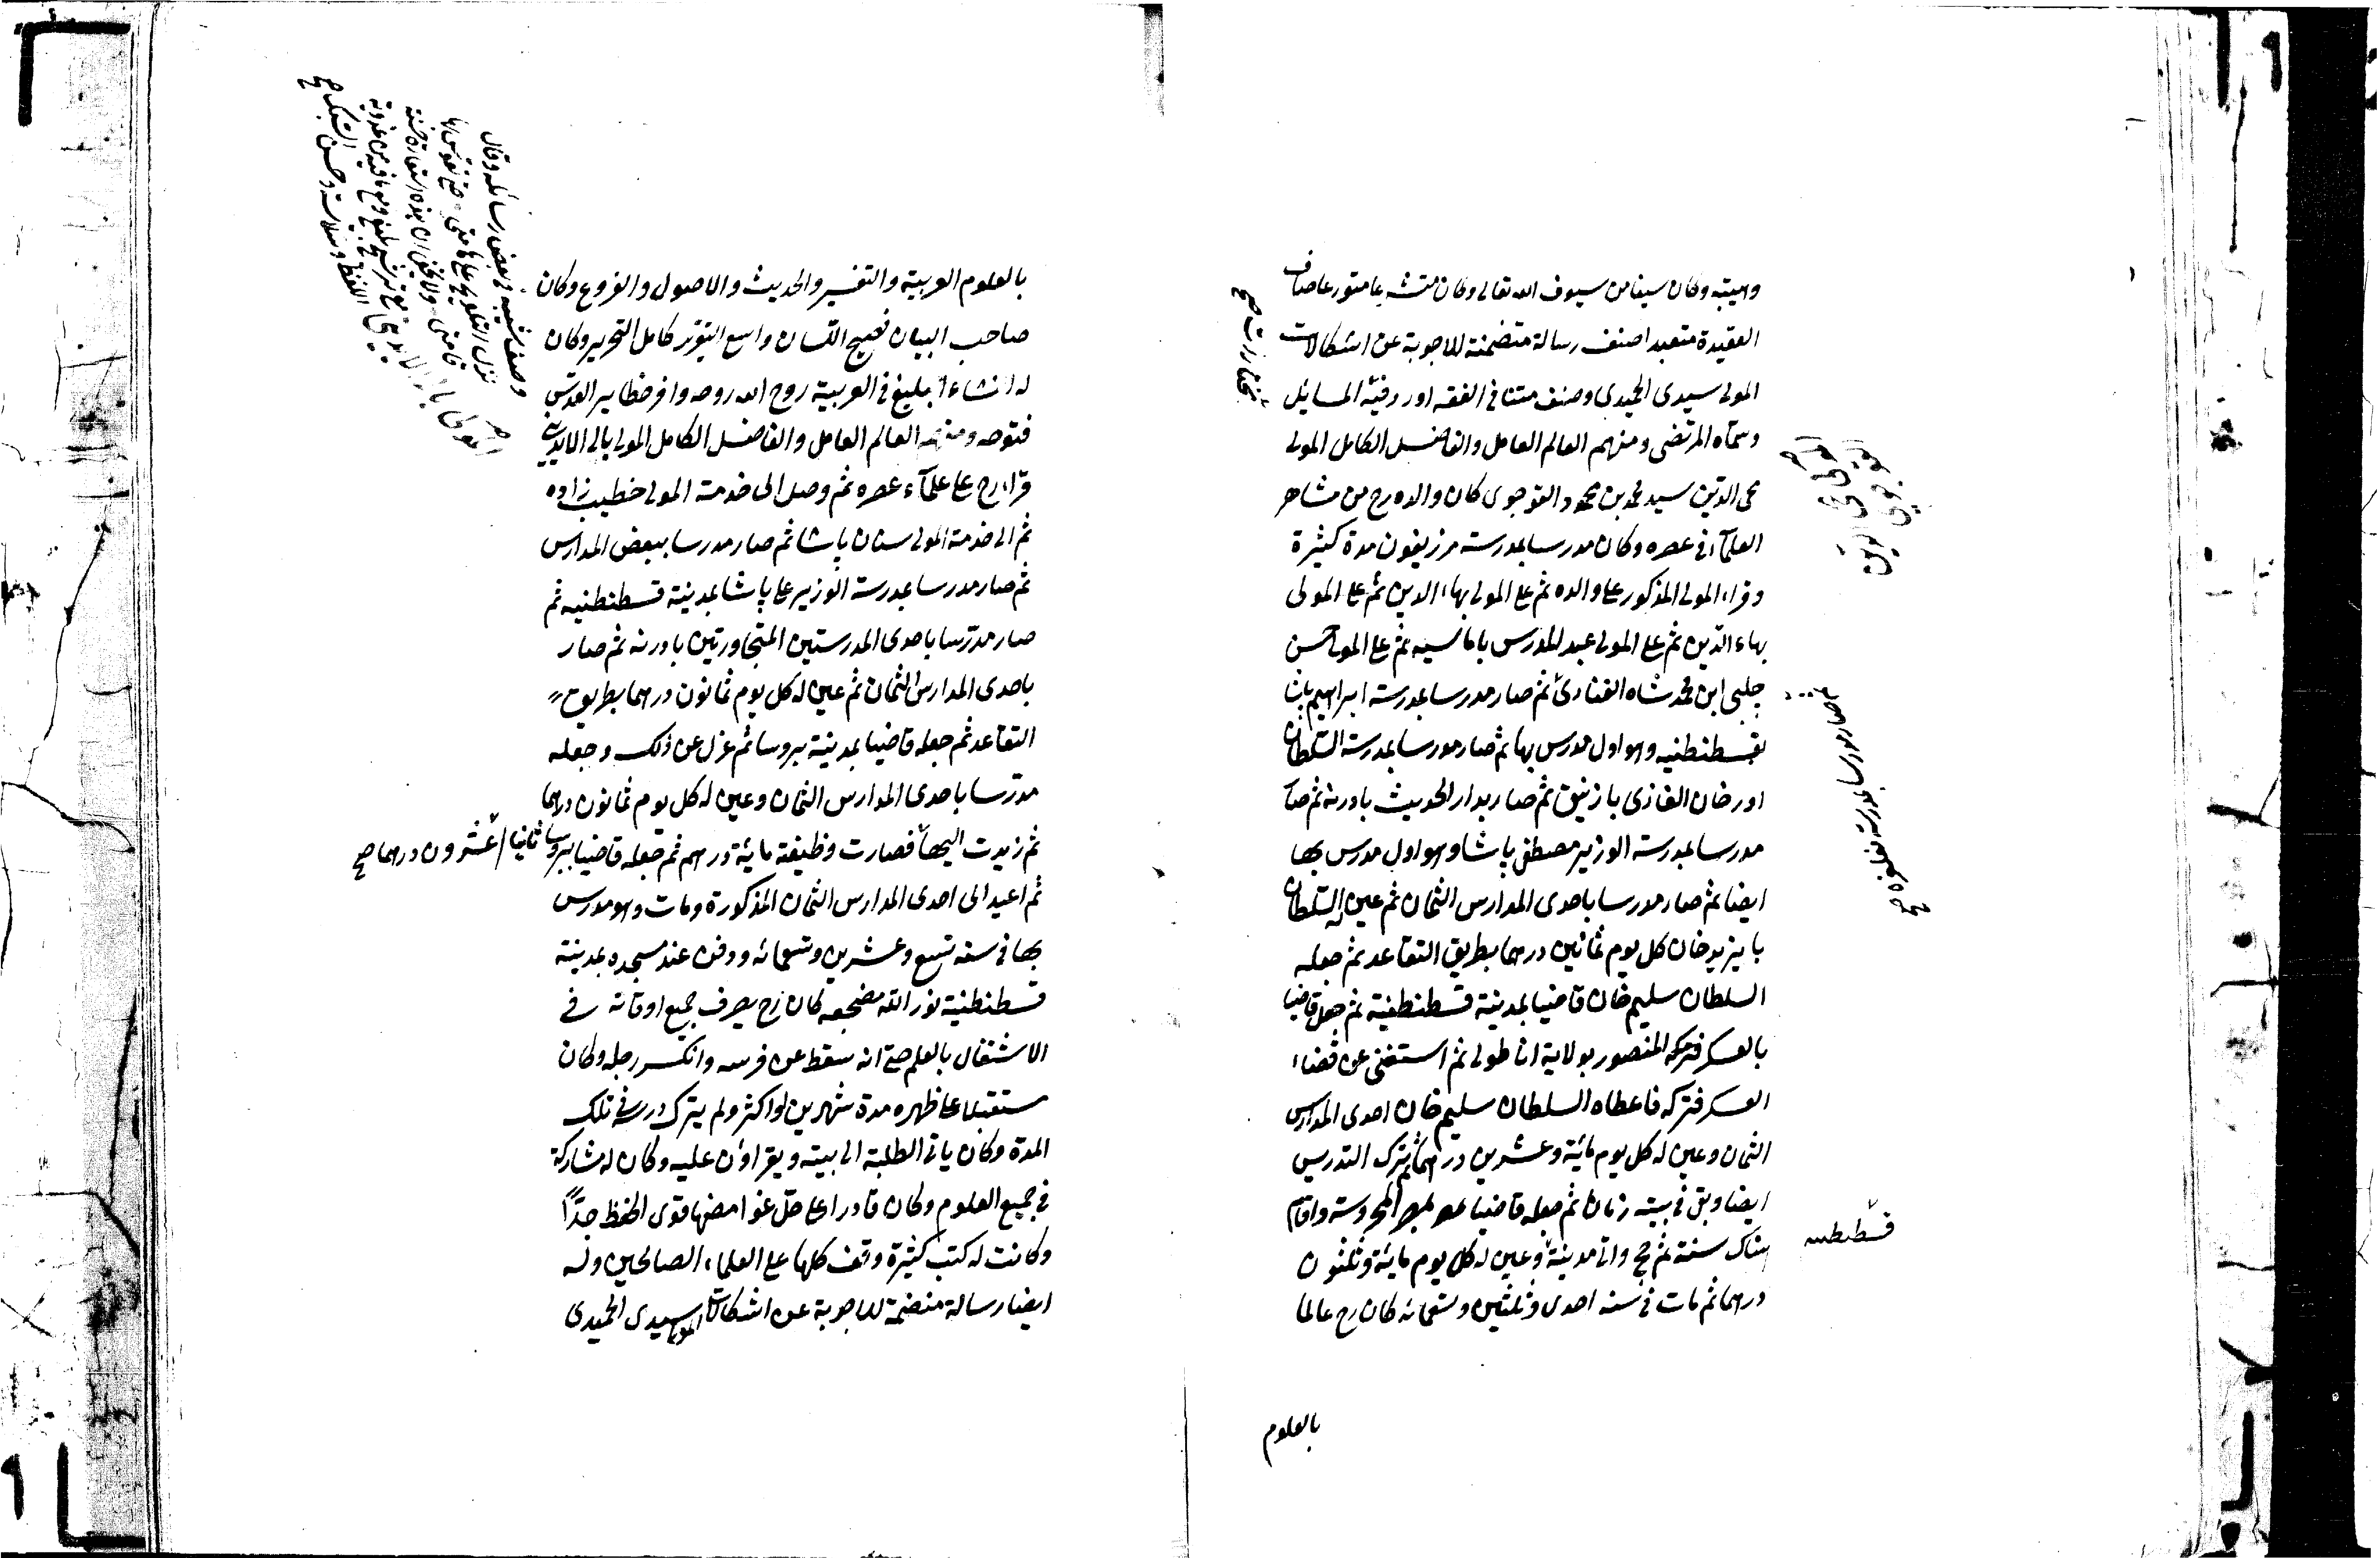 وهيبته وكان سيفا من سيوف الله تعالى وكان متشرعا متورعا صاف
العقيدة متعبدا صنف رسالة متضمنة للاجوبة عن اشكالات
المولى سيدى الحميدى وصنف متنا فى الفقه اورد فيه المسايل
وسماه المرتضى ومنهم العالم العامل والفاضل الكامل المولى
محى الدين سيد محمد بن محمود القوجوى كان والده رح من مشاهر
العلماء فى عصره وكان مدرسا بمدرسته مرزيفون مدة كثيرة
وقراء المولى المذكور على والده ثم على المولى بهاء الدين ثم على المولى
بهاء الدين ثم على المولى عبد المدرس باماسيه ثم على المولى حسن
چلبى ابن محمد شاه الفنارى ثم صار مدرسا بمدرسة ابراهيم پاشا
بقسطنطنيه وهو اول مدرس بها ثم صار مدرسا بمدرسة السلطان
اورخان الغازى بازنيق ثم صار بدار الحديث بادرنه ثم صار
مدرسا بمدرسة الوزير مصطفى پاشا وهو اول مدرس بها
ايضا ثم صار مدرسا باحدى المدارس الثمان ثم عين له السلطان
بايزيد خان كل يوم ثمانين درهما بطريق التقاعد ثم جعله
السلطان سليم خان قاضيا بمدينة قسطنطنية ثم جعل قاضيا
بالعسكر المنصور بولاية اناطولى ثم استعفى عن قضاء
العسكر فتركه فاعطاه السلطان سليم خان احدى المدارس
الثمان وعين له كل يوم مائية وعشرين درهما ثم ترك التدريس
ايضا وبقى فى بيته زمانا ثم جعله قاضيا بمصر المحروسة واقام
هناك سنة ثم حج واتى مدينة وعين له كل يوم مائية وثلثون
درهما ثم مات فى سنه احدى وثلثين وتسعمائه كان رح عالما
المولى محى الدين
القوجوى
ثم صار مدرسا بمدرسة صح
قسطنطنيه
بالعلوم
بالعلوم العربية والتفسير والحديث والاصول والفروع وكان
صاحب البيان فصيح اللسان واسع التقرير كامل التحرير وكان
له انشاء بليغ فى العربية روح الله روحه وافر حظاير القدس
فتوحه ومنهم العالم العامل والفاضل الكامل المولى بالى الايدينى
قراء رح على علماء عصره ثم وصل الى خدمة المولى خطيب زاده
ثم الى خدمة المولى سنان پاشا ثم صار مدرسا ببعض المدارس
ثم صار مدرسا بمدرسة الوزير على پاشا بمدينة قسطنطنيه ثم
صار مدرسا باحدى المدرستين المتجاورتين بادرنه ثم صار
باحدى المدارس الثمان ثم عين له كل يوم ثمانون درهما بطريق
التقاعد ثم جعله قاضيا بمدينة بروسا ثم عزل عن ذلك وجعله
مدرسا باحدى المدارس الثمان وعين له كل يوم ثمانون درهما
ثم زيدت اليها فصارت وظيفته مائية درهم ثم جعله قاضيا ببروسا ثانيا
عشرون درهما صح
ثم اعيد الى احدى المدارس الثمان المذكورة ومات وهو مدرس
بها فى سنه تسع وعشرين وتسعمائه ودفن عند مسجده بمدينة
قسطنطنية نور الله مضجعه كان رح يصرف جميع اوقاته فى
الاشتغال بالعلم حتى انه سقط عن فرسه وانكسر رجله وكان
مستلقيا على ظهره مدة شهرين او اكثر ولم يترك درسه فى تلك
المدة وكان ياتى الطلبة الى بيته ويقراون عليه وكان له مشاركة
فى جميع العلوم وكان قادرا على حل غوامضها قوى الحفظ جدا
وكانت له كتب كثيرة وقف كلها على العلماء الصالحين وله
ايضا رسالة متضمنة للاجوبة عن اشكالات المولى سيدى الحميدى